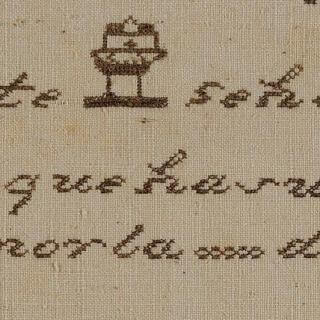 te se h
que ha su
por la